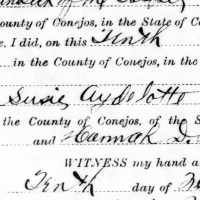 County of Conejos, in the State of C
e, I did, on this Tenth
in the County of Conejos, in the
Susie Aydelotte
the County of Conejos, of the S
and Hannah D.
WITNESS my hand a
Tenth day of